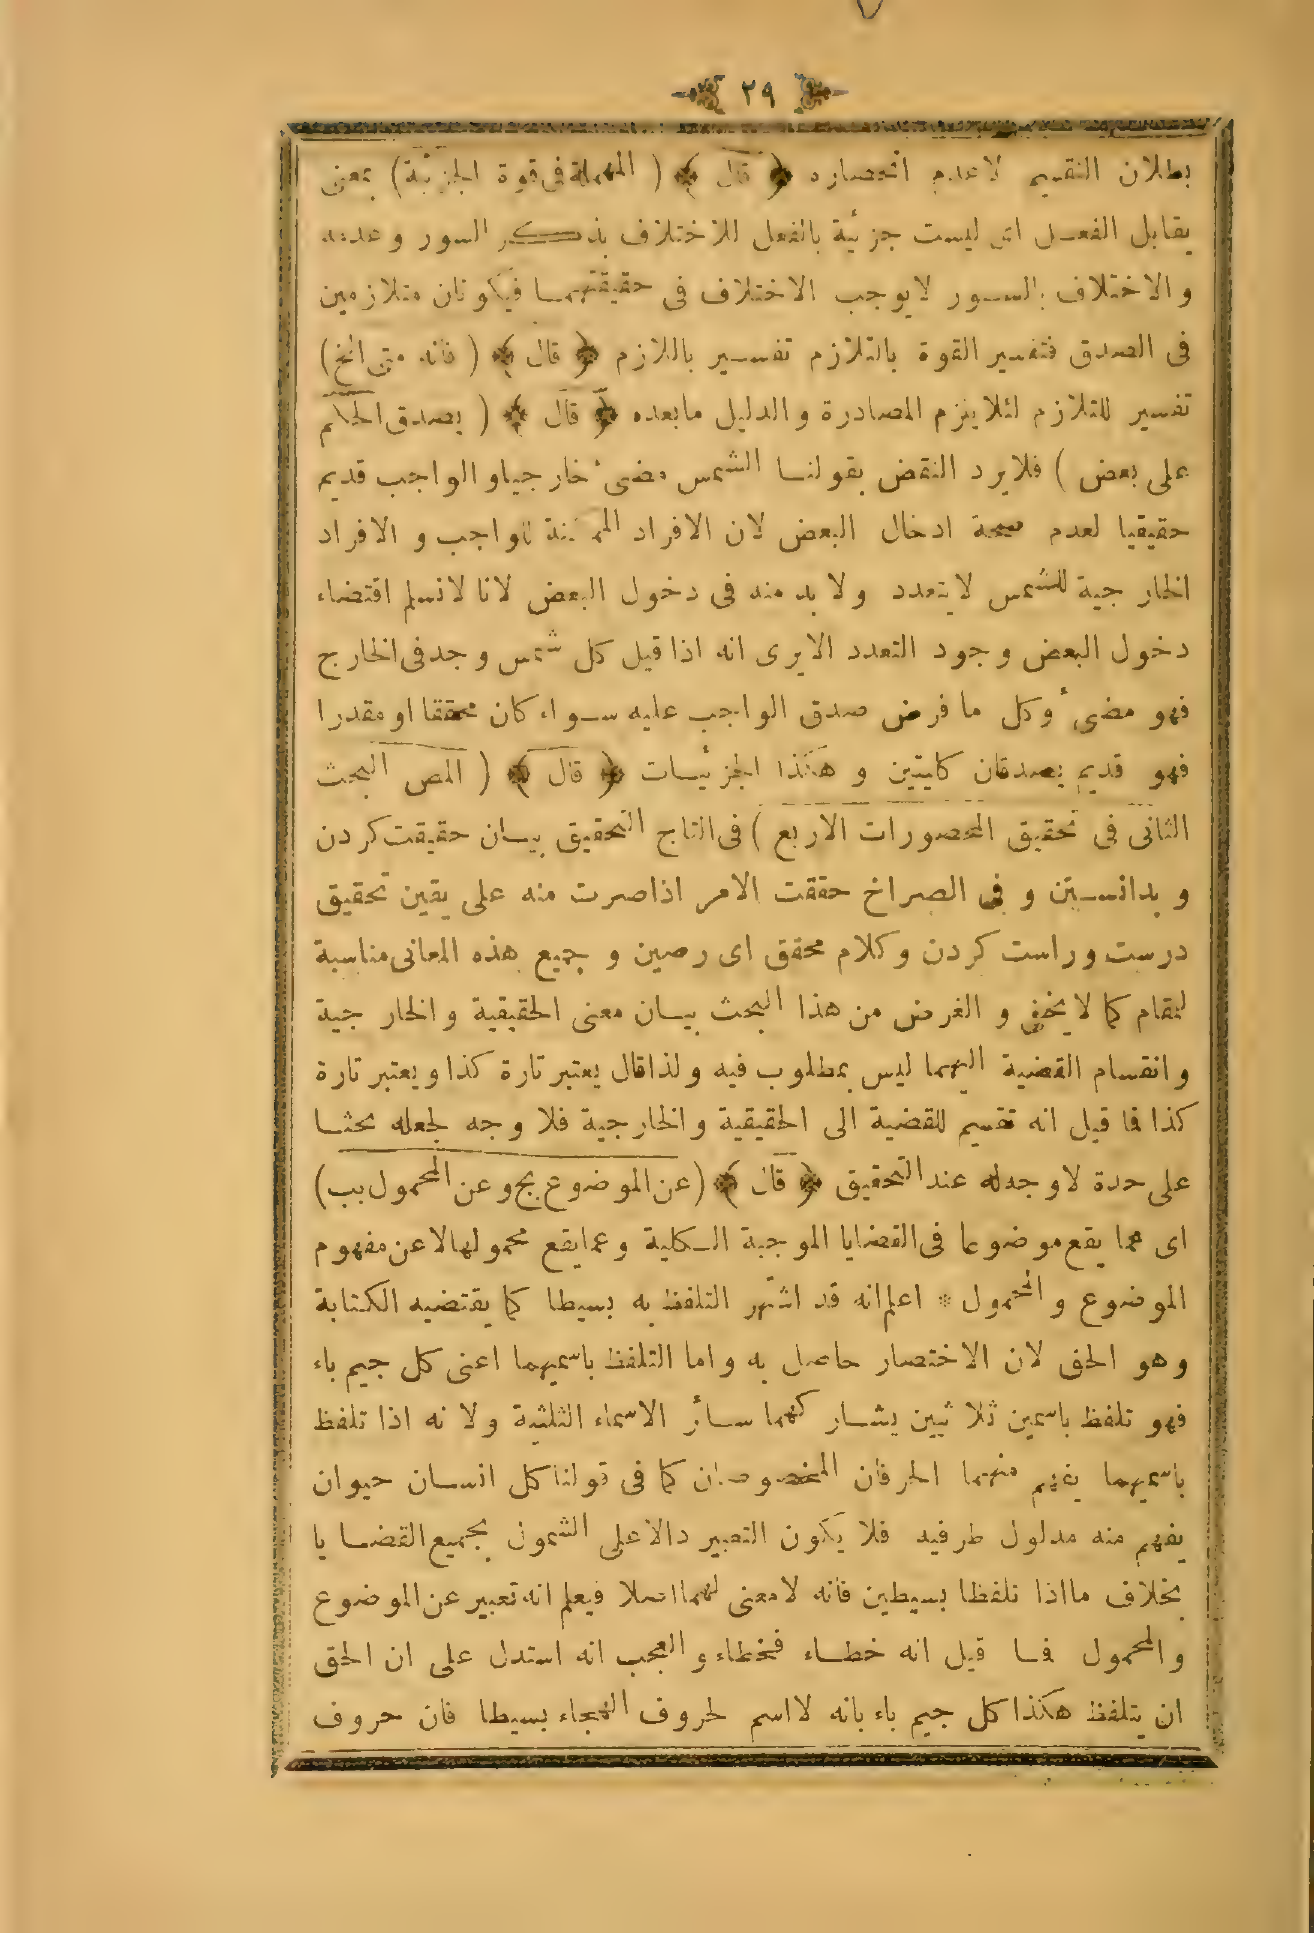 ٢٩
بطلان التقسيم لا عدم انحصاره ﴿ قال ﴾ ( المهملة فى قوة الجزئية ) بمعنى
يقابل الفعل اى ليست جزئية بالفعل للاختلاف بذكر السور وعدمه
والاختلاف بالسور لايوجب الاختلاف فى حقيقتهما فيكونان متلازمين
فى الصدق فتفسير القوة بالتلازم تفسير باللازم ﴿ قال ﴾ ( فانه متى الخ )
تفسير للتلازم لئلا يلزم المصادرة والدليل مابعده ﴿ قال ﴾ ( يصدق الحكم
على بعض ) فلا يرد النقض بقولنا الشمس مضىء خارجيا والواجب قديم
حقيقيا لعدم صحة ادخال البعض لان الافراد الممكنة للواجب و الافراد
الخارجية للشمس لا يتعدد ولا بد منه فى دخول البعض لانا لانسلم اقتضاء
دخول البعض وجود التعدد الايرى انه اذا قيل كل شمس وجد فى الخارج
فهو مضىء وكل ما فرض صدق الواجب عليه سواء كان محققا او مقدرا
فهو قديم يصدقان كليتين و هكذا الجزئيات ﴿ قال ﴾ ( المص البحث
الثانى فى تحقيق المحصورات الاربع ) فى التاج التحقيق بيان حقيقت كردن
و بدانستن و فى الصراخ حققت الامر اذا صرت منه على يقين تحقيق
درست وراست كردن وكلام محقق اى رصين و جميع هذه المعانى مناسبة
للمقام كما لا يخفى و الغرض من هذا البحث بيان معنى الحقيقية والخارجية
وانقسام القضية اليهما ليس بمطلوب فيه ولذا قال يعتبر تارة كذا ويعتبر تارة
كذا فما قيل انه تقسيم للقضية الى الحقيقية والخارجية فلا وجه لجعله بحثا
على حدة لا وجه له عند التحقيق ﴿ قال ﴾ ( عن الموضوع بج وعن المحمول بب )
اى عما يقع موضوعا فى القضايا الموجبة الكلية وعما يقع محمولها لا عن مفهوم
الموضوع والمحمول * اعلم انه قد اشتهر التلفظ به بسيطا كما يقتضيه الكتابة
وهو الحق لان الاختصار حاصل به واما التلفظ باسميهما اعنى كل جيم باء
فهو تلفظ باسمين ثلاثيين يشاركهما سائر الاسماء الثلثية ولانه اذا تلفظ
باسميهما يفهم منهما الحرفان المخصوصان كما فى قولنا كل انسان حيوان
يفهم منه مدلول طرفيه فلا يكون التعبير دالا على الشمول بجميع القضايا
بخلاف ما اذا تلفظا بسيطين فانه لا معنى لهما اصلا فيعلم انه تعبير عن الموضوع
والمحمول فما قيل انه خطاء فخطاء والعجب انه استدل على ان الحق
ان يتلفظ هكذا كل جيم باء بانه لا اسم لحروف التهجاء بسيطا فان حروف